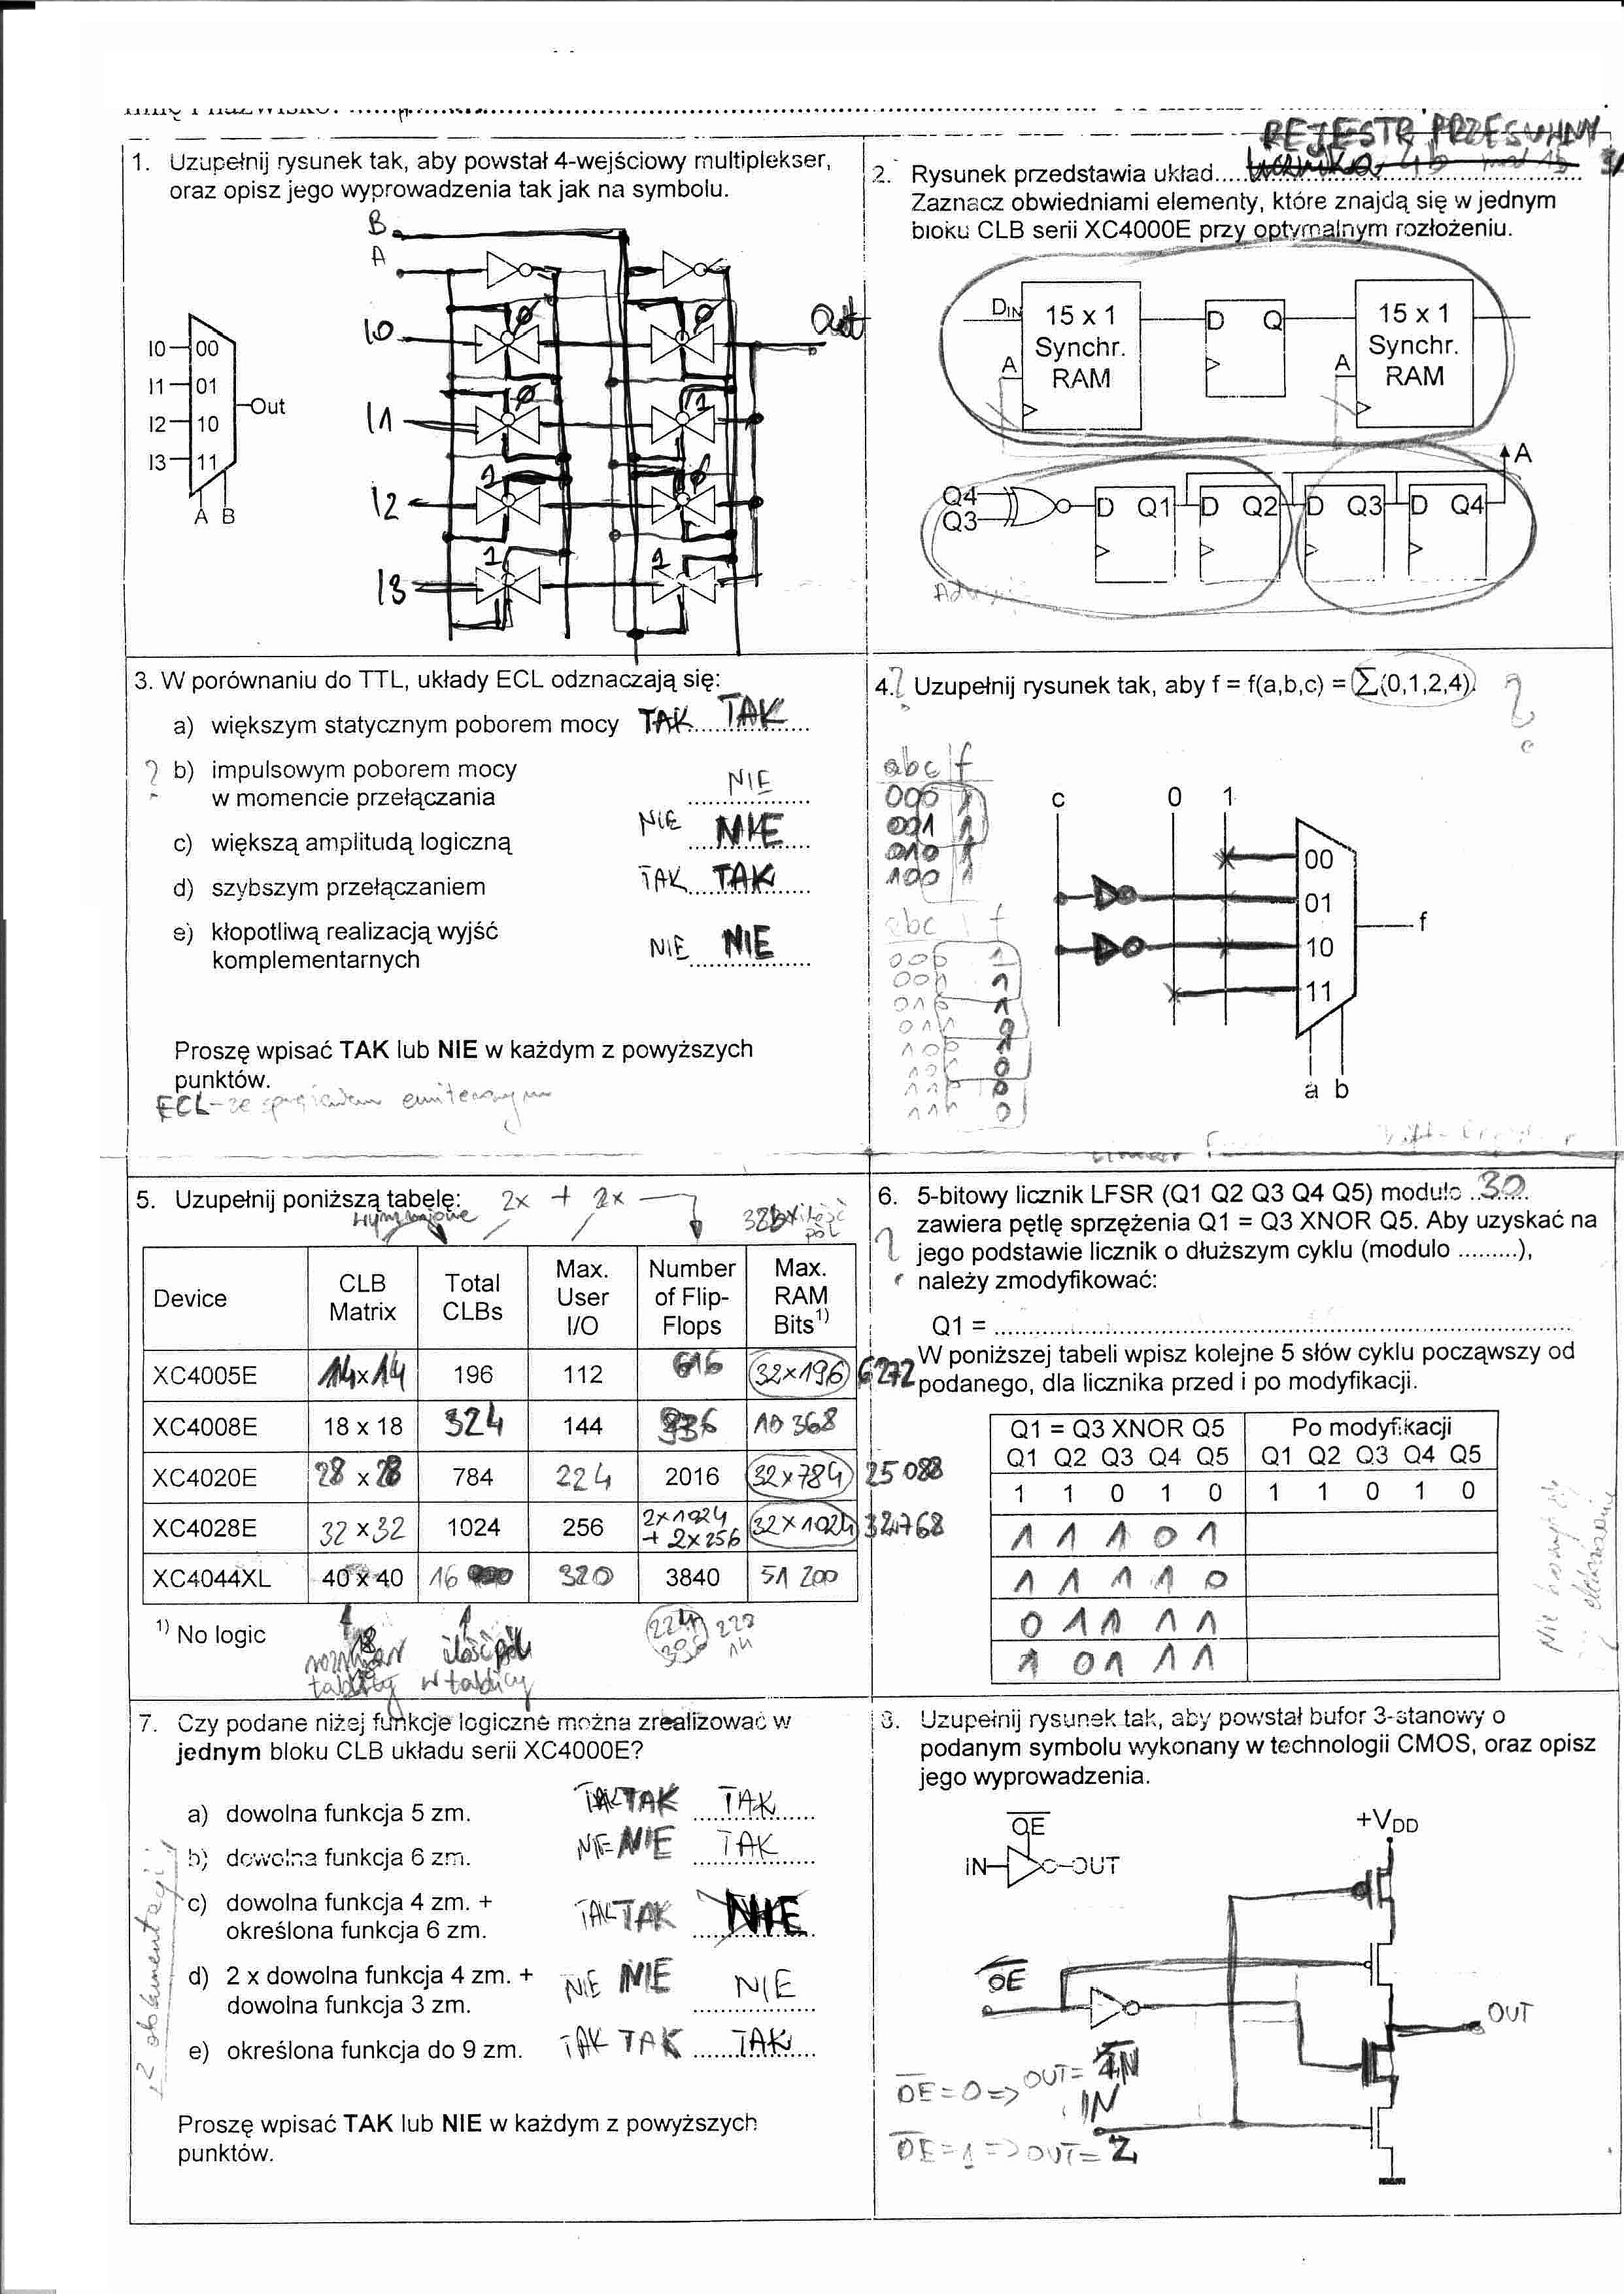 REJESTR PRZESUWNY
1. Uzupełnij rysunek tak, aby powstał 4-wejściowy multiplekser,
oraz opisz jego wyprowadzenia tak jak na symbolu.
B
A
I0
I1
I2
I3
Out
0 0
0 1
1 0
1 1
I0 00
I1 01
I2 10
I3 11
Out
A B
2. Rysunek przedstawia układ....
Zaznacz obwiedniami elementy, które znajdą się w jednym
bloku CLB serii XC4000E przy optymalnym rozłożeniu.
DIN 15 x 1 D Q 15 x 1
Synchr. Synchr.
A RAM A RAM
A
Q4 D Q1 D Q2 D Q3 D Q4
Q3
3. W porównaniu do TTL, układy ECL odznaczają się:
a) większym statycznym poborem mocy TAK TAK
? b) impulsowym poborem mocy NIE
w momencie przełączania
c) większą amplitudą logiczną NIE NIE
d) szybszym przełączaniem TAK TAK
e) kłopotliwą realizacją wyjść NIE NIE
komplementarnych
Proszę wpisać TAK lub NIE w każdym z powyższych
punktów.
ECL - ze
4. ? Uzupełnij rysunek tak, aby f = f(a,b,c) = ∑(0,1,2,4). ?
abc f
000 1
001 1
010 1
100 1
abc f
000 1
001 1
010 1
011 0
100 1
101 0
110 0
111 0
c 0 1
00
01
10
11
f
a b
5. Uzupełnij poniższą tabelę: 2x + 2x
Device CLB Matrix Total CLBs Max. User I/O Number of Flip-Flops Max. RAM Bits1)
XC4005E 14x14 196 112 616 32x196 6272
XC4008E 18 x 18 324 144 936 10 368
XC4020E 28 x 28 784 224 2016 32x784 25 088
XC4028E 32 x 32 1024 256 2x1024 + 2x256 32x1024 32768
XC4044XL 40 x 40 16 320 3840 51 200
1) No logic
rozmiar ilość pól
tablicy w tablicy
6. 5-bitowy licznik LFSR (Q1 Q2 Q3 Q4 Q5) modulo ..30..
zawiera pętlę sprzężenia Q1 = Q3 XNOR Q5. Aby uzyskać na
? jego podstawie licznik o dłuższym cyklu (modulo .........),
należy zmodyfikować:
Q1 = ..........
W poniższej tabeli wpisz kolejne 5 słów cyklu począwszy od
podanego, dla licznika przed i po modyfikacji.
Q1 = Q3 XNOR Q5 Po modyfikacji
Q1 Q2 Q3 Q4 Q5 Q1 Q2 Q3 Q4 Q5
1 1 0 1 0 1 1 0 1 0
1 1 1 0 1
1 1 1 1 0
0 1 1 1 1
1 0 1 1 1
7. Czy podane niżej funkcje logiczne można zrealizować w
jednym bloku CLB układu serii XC4000E?
a) dowolna funkcja 5 zm. TAK TAK TAK
b) dowolna funkcja 6 zm. NIE NIE TAK
c) dowolna funkcja 4 zm. + TAK TAK NIE
określona funkcja 6 zm.
d) 2 x dowolna funkcja 4 zm. + NIE NIE NIE
dowolna funkcja 3 zm.
e) określona funkcja do 9 zm. TAK TAK TAK
Proszę wpisać TAK lub NIE w każdym z powyższych
punktów.
z dokumentacji
8. Uzupełnij rysunek tak, aby powstał bufor 3-stanowy o
podanym symbolu wykonany w technologii CMOS, oraz opisz
jego wyprowadzenia.
OE
IN OUT
+VDD
OE
OUT
IN
OE = 0 => OUT = IN
OE = 1 => OUT = Z